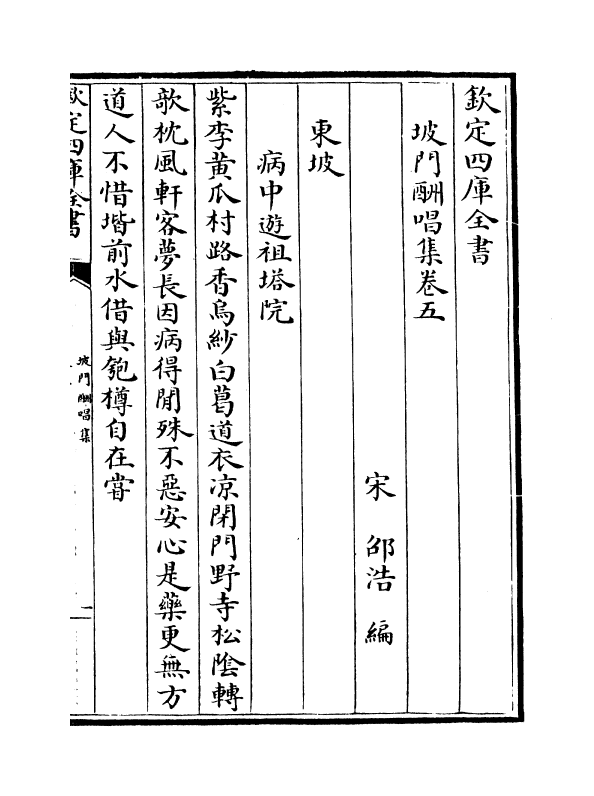 欽定四庫全書
坡門酬唱集卷五
宋 邵浩 編
東坡
病中遊祖塔院
紫李黄瓜村路香烏紗白葛道衣凉閉門野寺松陰轉
欹枕風軒客夢長因病得閒殊不惡安心是藥更無方
道人不惜堦前水借與匏樽自在嘗
欽定四庫全書
坡門酬唱集
一